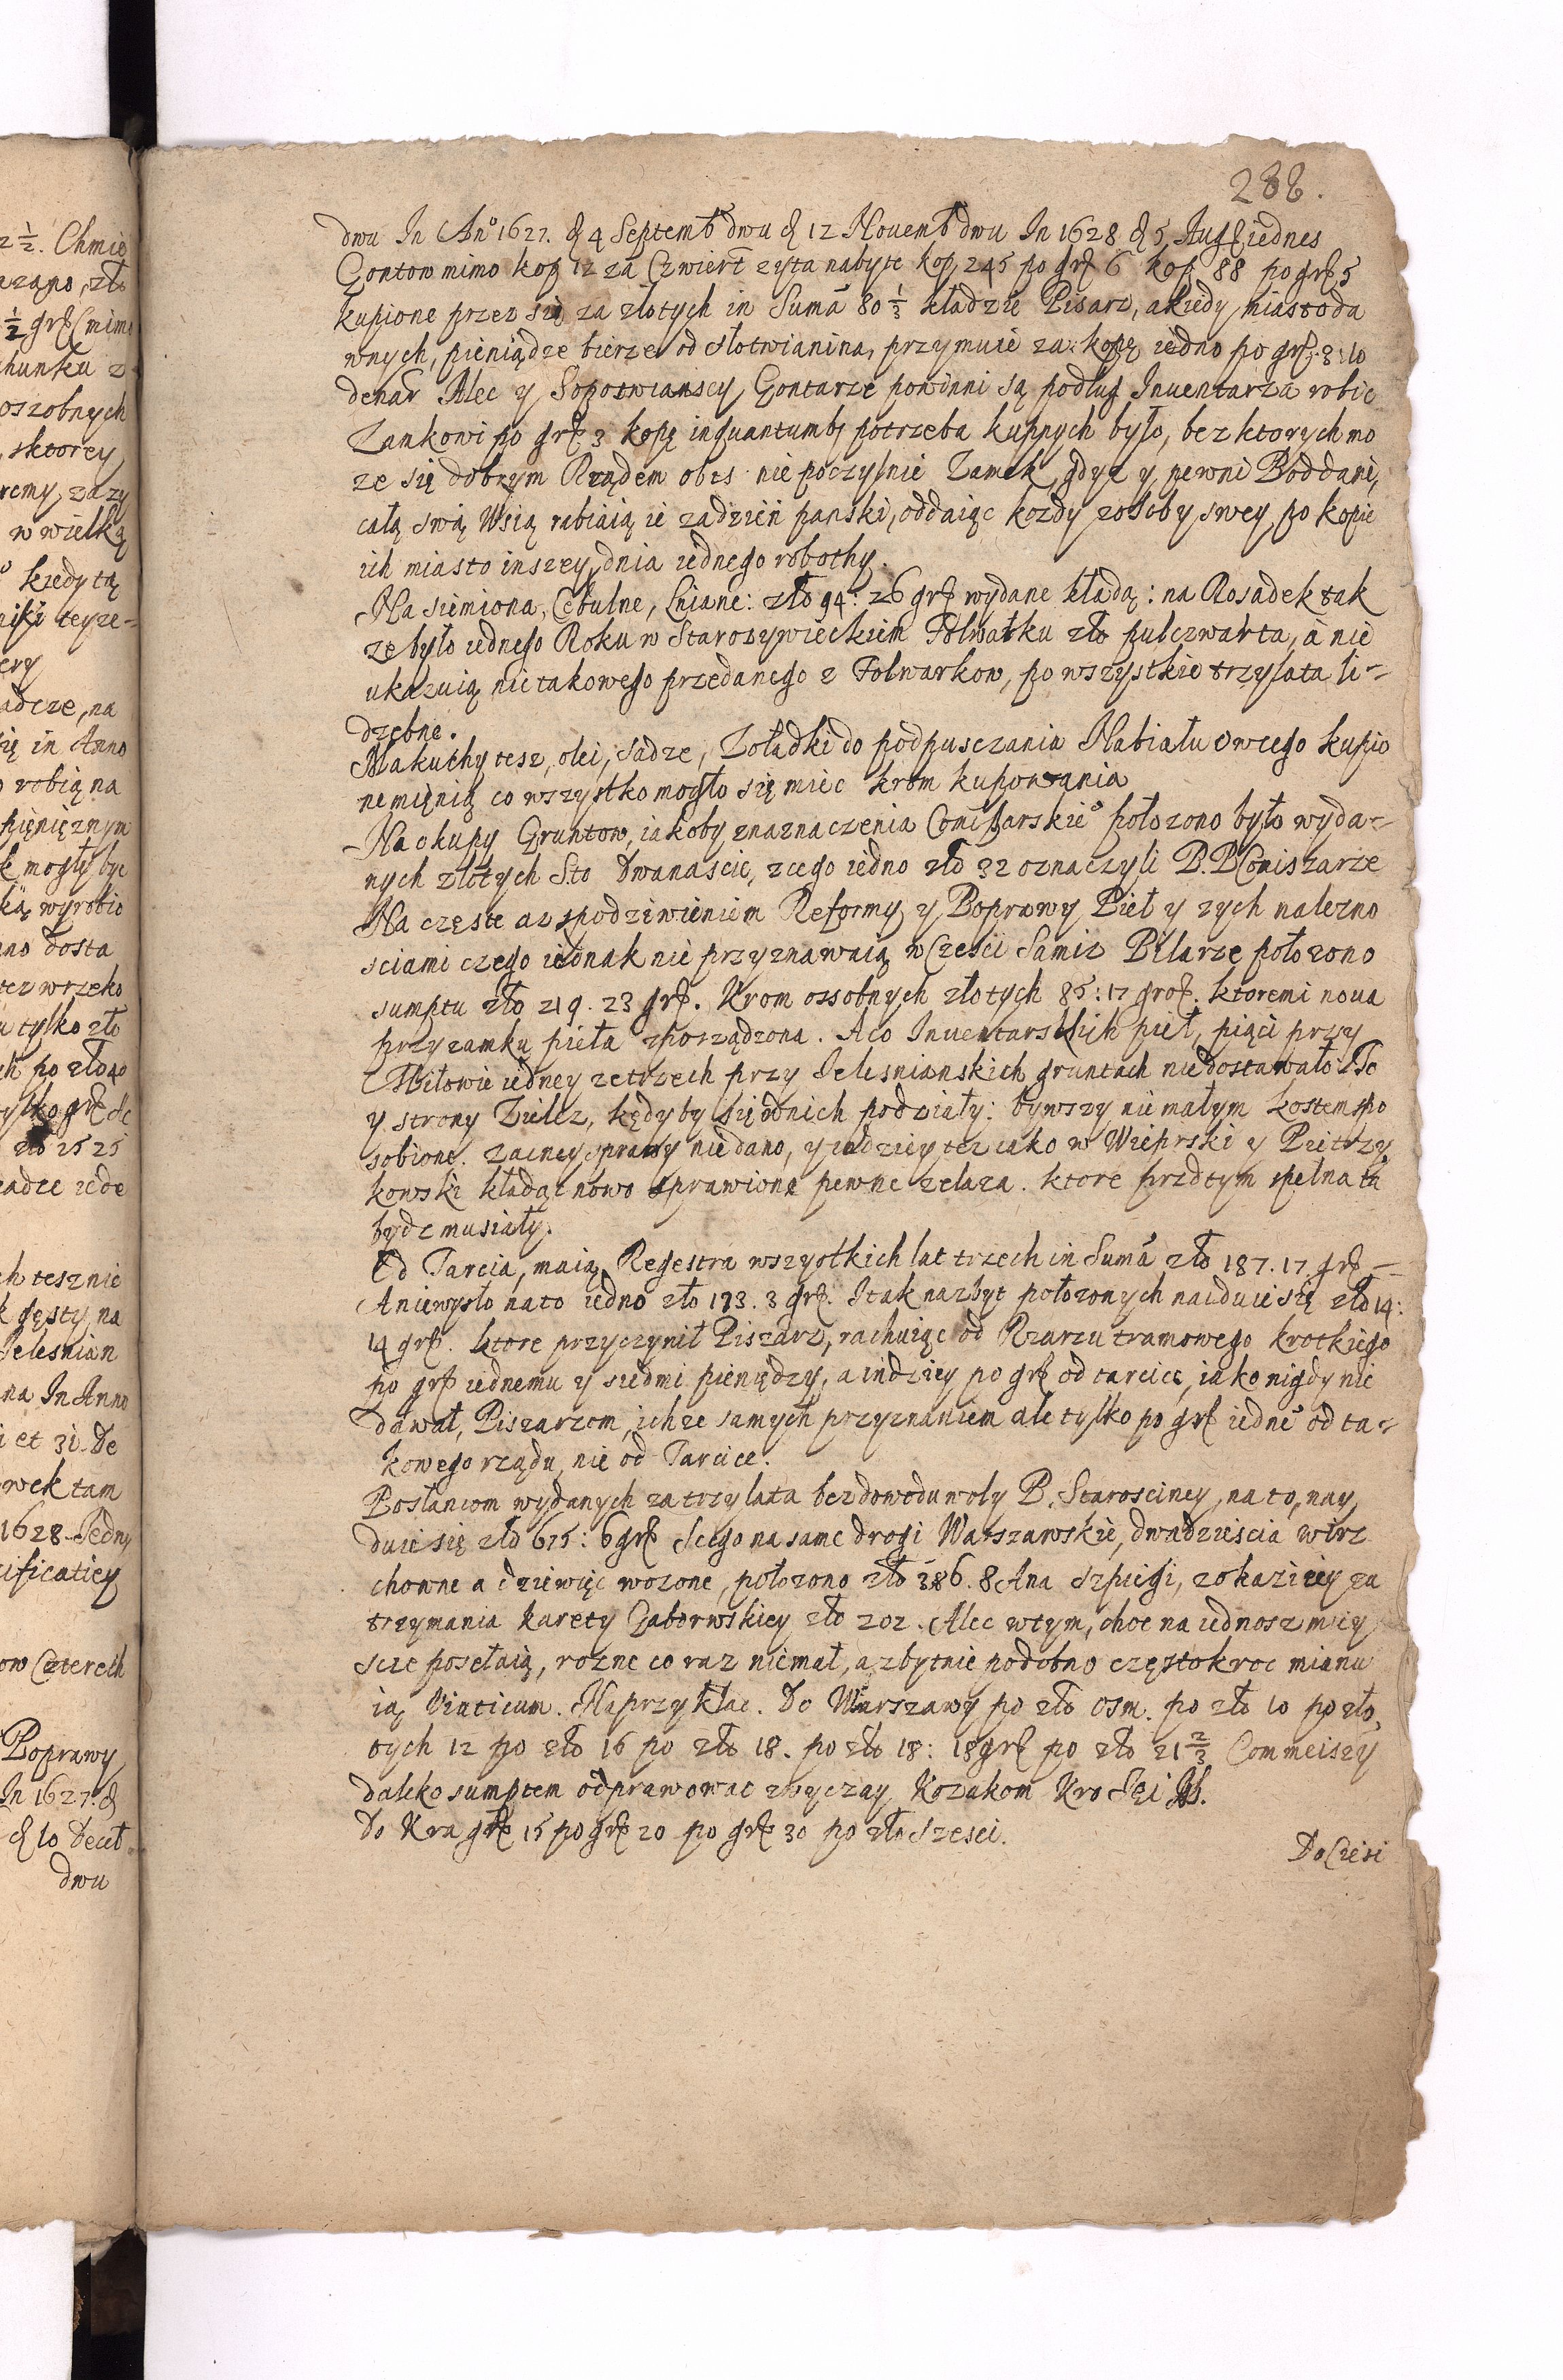 288.
dwu In Ano 1627. d 4 Septemb dwu d 12 Nouemb dwu In 1628 d 5 Aug iednes
Gontow mimo kop 12 za Czwiert zyta nabyte kop 245 po gr 6 kop 88 po gr 5
kupione przez się za złotych in Suma 80 1/3 kładzie Pisarz, a kiedy miasto da
wnych, pieniądze bierze od słotwianina, przymuie za kopę iedno po gr. 8: 10
denar Alec y Sopotwianscy Gontarze powinni są podług Inuentarza robic
Zamkowi po gr 3 kopę inquantumby potrzeba kupnych było, bez ktorych mo
ze się dobrym Rządem obes nie poczysnie Zamek, gdyz y pewni Poddani,
całą swą Wsią rabiaią ie zadzień panski, oddaiąc kozdy zosoby swey po kopie
ich miasto inszey dnia iednego robothy.
Na siemiona, Cebulne, Lniane: zło 94: 26 gr wydane kładą: na Rosadek tak
ze było iednego Roku w Starozywieckiem Folwarku zło pulczwarta, a nie
ukazuią nic takowego przedanego z Folwarkow, po wszystkie trzy lata li-
dzebne.
Makuchy tesz, olei, Sadze, Zoładki do podpusczania Nabiału Owcego kupio
ne mięnią co wszystko mogło się miec krom kupowania
Na okupy Gruntow, iakoby znaznaczenia Comissarskieo połozono było wyda-
nych złotych Sto Dwanascie, z cego iedno zło 32 oznaczyli P.P Comiszarze
Na częste az spodziwieniem Reformy y Poprawy Pieł y zych nalezno
sciami czego iednak nie przyznawaią w Czesci Samiz Pilarze połozono
sumptu zło 219. 23 gr. Krom ossobnych złotych 85: 17 gro. ktoremi noua
przy zamku pieła zporządzona. A co Inuentarskich pieł, pięci przy
Miłowie iedney ze trzech przy Jelesnianskich gruntach nie dostawało To
y strony Zielez, kędyby się od nich podziały: bywszy nie małym kosztem spo
sobione. Zacney sprawy nie dano, y indziey tez iako w Wieprski y Pietrzy
kowski kładą znowo sprawione pewne zelaza. ktore przed tym spełna tu
bydz musiały.
Od Tarcia, maią Regestra wszystkich lat trzech in Suma zło 187. 17 gr -
A niewysło na to iedno zło 173. 3 gr. I tak nazbyt połozonych naiduie się zło 14:
14 gr. ktore przyczynił Piszarz, rachuiąc od Rzarzu tramowego krotkiego
po gr iednemu y siedmi pieniędzy, a indziey po gr od tarcice, iako nigdy nie
dawał, Piszarzom, ichze samych przyznaniem ale tylko po gr iedneo od ta-
kowego rządu, nie od Tarcice.
Posłancom wydanych za trzy lata bez dowodu woły P. Starosciney, na to, nay
duie się zło 675: 6 gr Scego na same drogi Warszawskie, dwadziescia wirz
chowne a dziewięc wozone, połozono zło 386. 8 A na szpiegi, z okaziiey za
trzymania karety Gaborwskiey zło 202. Alec w tym, choc na iednosz miey
sce posełaią, rozne co raz niemał, a zbytnie podobno częstokroc mianu
ią Viaticum. Na przykład. Do Warszawy po zło Osm. po zło 10 po zło,
tych 12 po zło 16 po zło 18. po zło 18: 18 gr po zło 21 2/3 Com meiszy
daleko sumptem odprawowac zwyczay Kozakom
Do Kra gr 15 po gr 20 po gr 30 po zło Szesci.
Do Czesi